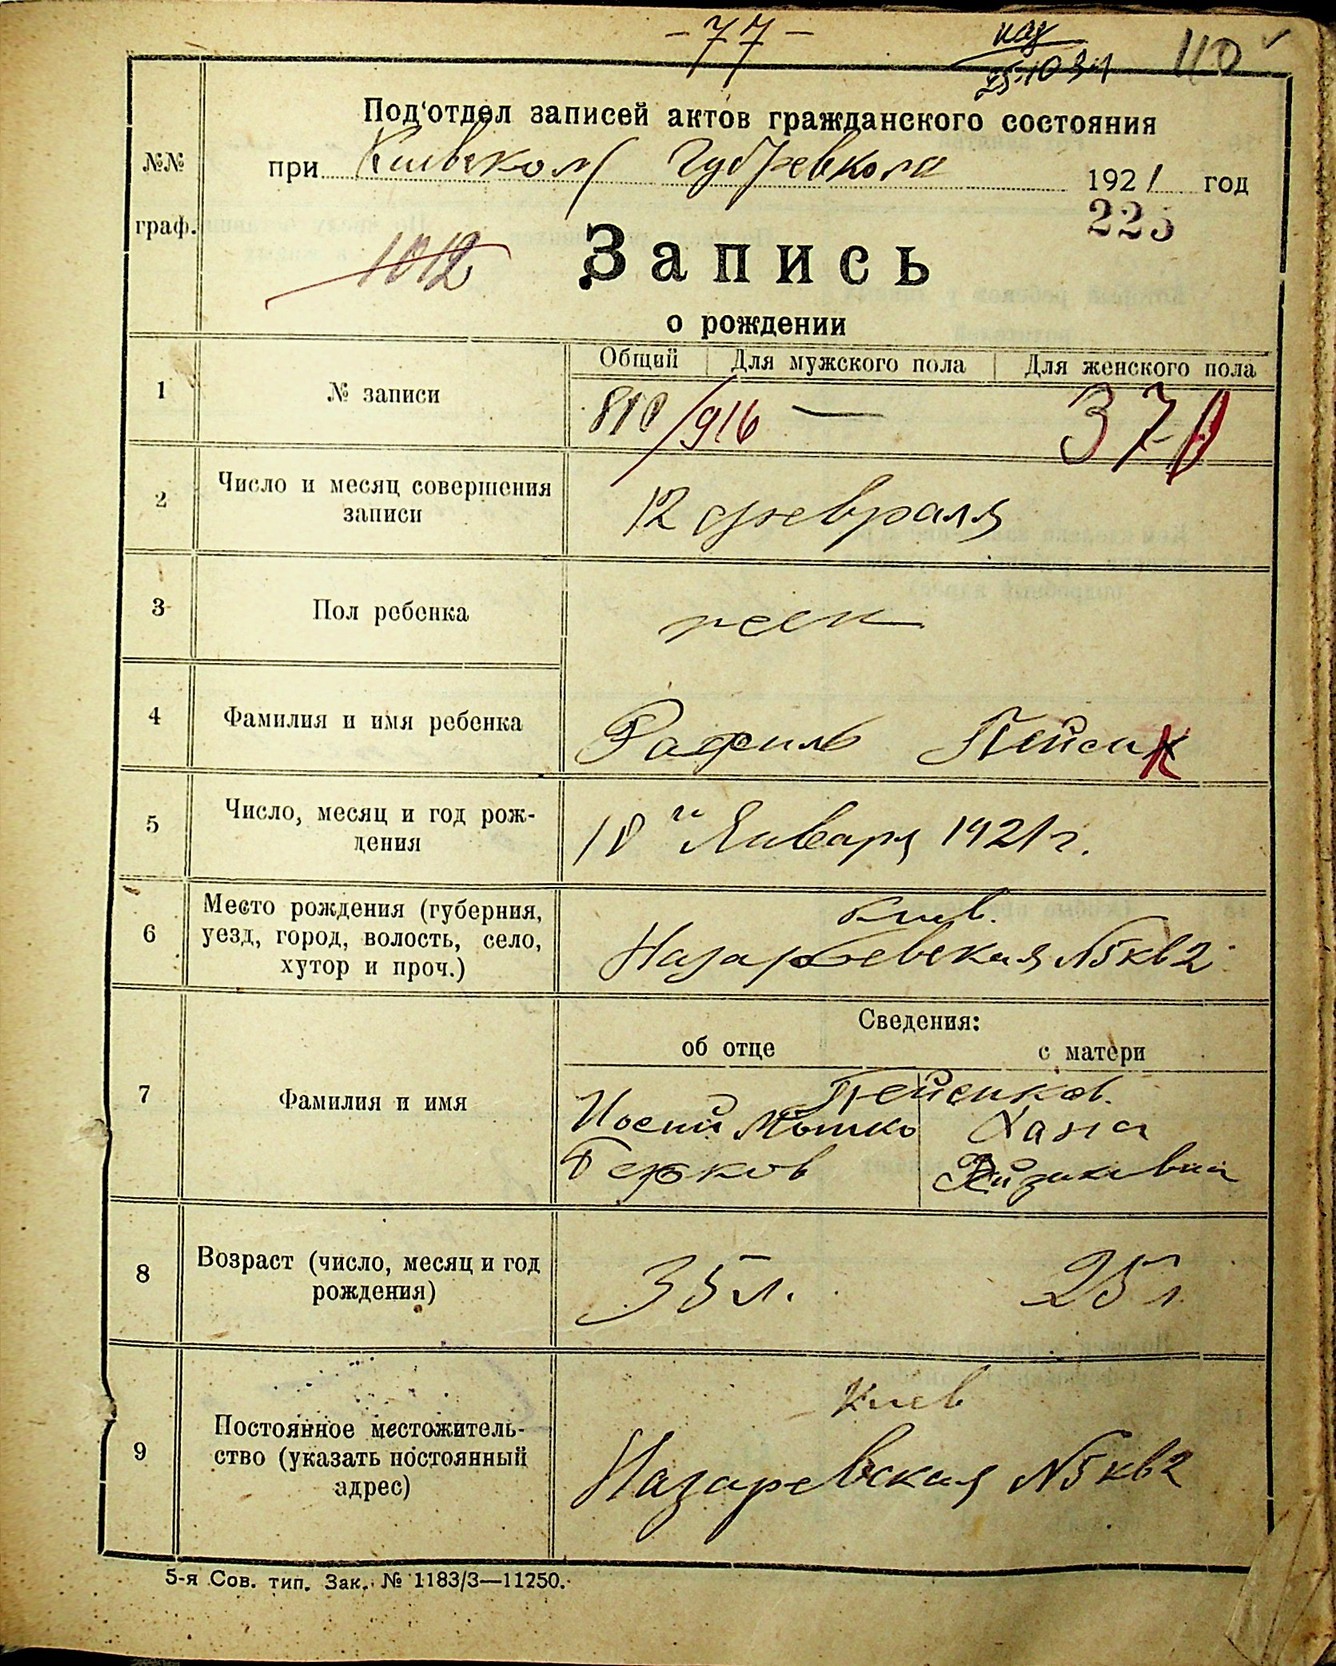 - 77 -
110
Под'отдел записей актов гражданского состояния
при Киевском Губревкома 1921 год
225
№№
граф.
1012
Запись
о рождении
Общий Для мужского пола Для женского пола
1 № записи 810/916 — 370
2 Число и месяц совершения
записи
12 февраля
3 Пол ребенка жен
4 Фамилия и имя ребенка Рафиль Пейсик
5 Число, месяц и год рож-
дения
18 го Января 1921 г.
6 Место рождения (губерния,
уезд, город, волость, село,
хутор и проч.)
Киев.
Назарьевская № 5 кв 2
Сведения:
об отце с матери
7 Фамилия и имя
Пейсиков.
Иосиф Мошко Хана
Берков
8 Возраст (число, месяц и год
рождения)
35 л. 25 л
9 Постоянное местожитель-
ство (указать постоянный
адрес)
Киев
Назаревская № 5 кв 2
5-я Сов. тип. Зак. № 1183/3—11250.